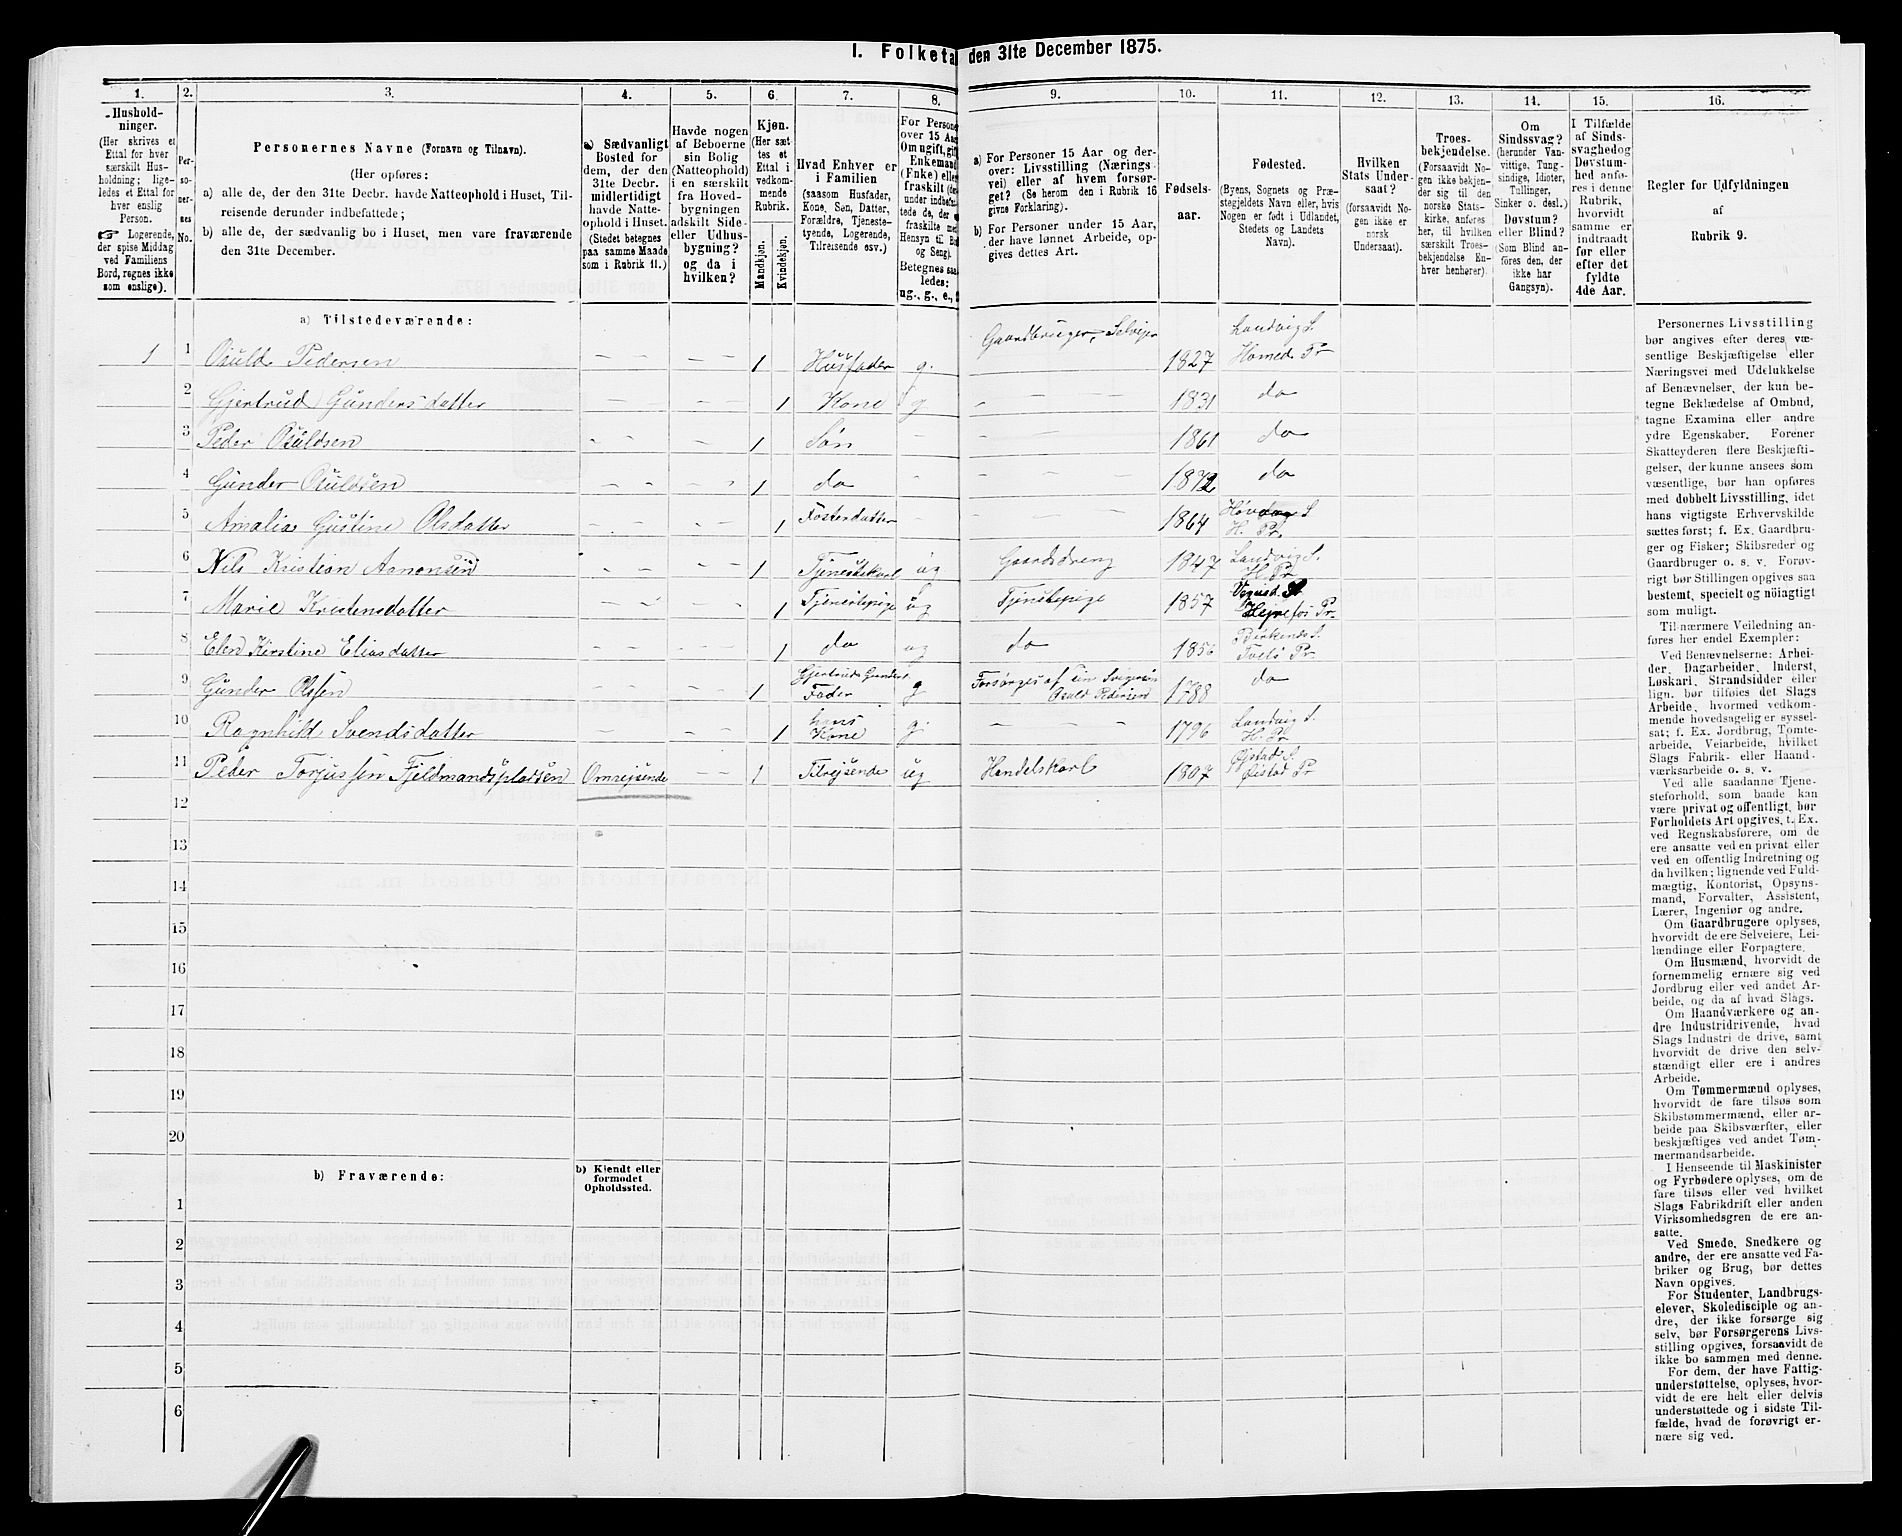 I. Folketæ den 31te December 1875.
1. 2. 3. 4. 5. 6. 7. 8. 9. 10. 11. 12. 13. 14. 15. 16.
Hushold-
ninger.
(Her skrives et
Ettal for hver
særskilt Hus-
holdning; lige-
ledes et Ettal for
hver enslig
Person.
☞ Logerende,
der spise Middag
ved Familiens
Bord, regnes ikke
som enslige).
Per-
so-
ner-
nes
No.
Personernes Navne (Fornavn og Tilnavn).
(Her opføres:
a) alle de, der den 31te Decbr. havde Natteophold i Huset, Til-
reisende derunder indbefattede;
b) alle de, der sædvanlig bo i Huset, men vare fraværende
den 31te December.
a) Sædvanligt
Bosted for
dem, der den
31te Decbr.
midlertidigt
havde Natte-
ophold i Huset.
(Stedet betegnes
paa samme Maade
som i Rubrik 11.)
Havde nogen
af Beboerne
sin Bolig
(Natteophold)
i en særskilt
fra Hoved-
bygningen
adskilt Side-
eller Udhus-
bygning?
og da i
hvilken?
Kjøn.
(Her sæt-
tes et
Ettal i
vedkom-
mende
Rubrik.
Mandkjøn.
Kvindekjøn.
Hvad Enhver er
i Familien
(saasom Husfader,
Kone, Søn, Datter,
Forældre, Tjeneste-
tyende, Logerende,
Tilreisende osv.)
For Person
over 15 Aa
Om ugift, gif
Enkemand
(Enke) eller
fraskilt (der
under indbef
tede de, der
fraskilte med
Hensyn til B
og Seng).
Betegnes saa
ledes:
ug., g., e.,
a) For Personer 15 Aar og der-
over: Livsstilling (Nærings-
vei) eller af hvem forsør-
get? (Se herom den i Rubrik 16
givne Forklaring).
b) For Personer under 15 Aar,
der have lønnet Arbeide, op-
gives dettes Art.
Fødsels-
aar.
Fødested.
(Byens, Sognets og Præ-
stegjeldets Navn eller, hvis
Nogen er født i Udlandet,
Stedets og Landets
Navn).
Hvilken
Stats Under-
saat?
(forsaavidt No-
gen ikke er
norsk
Undersaat).
Troes-
bekjendelse.
(Forsaavidt No-
gen ikke bekjen-
der sig til den
norske Stats-
kirke, anføres
her, til hvilken
særskilt Troes-
bekjendelse En-
hver henhører).
Om
Sindssvag?
(herunder Van-
vittige, Tung-
sindige, Idioter,
Tullinger,
Sinker o. desl.).
Døvstum?
eller Blind?
(Som Blind an-
føres den, der
ikke har
Gangsyn).
I Tilfælde
af Sinds-
svaghed og
Døvstum-
hed anfø-
res i denne
Rubrik,
hvorvidt
samme er
indtraadt
før eller
efter det
fyldte
4de Aar.
Regler for Udfyldningen
af
Rubrik 9.
a) Tilstedeværende:
1 1 Osuld Pedersen – – – – 1 Husfader g. Gaardbruger, Selvejer 1827 Landvig S. Homed. Pr
2 Gjertrud Gundersdatter – – – – 1 Kone g – – – 1831 do
3 Peder Osuldsen – – – – 1 Søn – – – – 1861 do
4 Gunder Osuldsen – – – – 1 do – – – – 1872 do
5 Amalia Gustine Olsdatter – – – – 1 Fosterdatter 1864 Høvaag S H. Pr
6 Nils Kristian Aanonsen – – – – 1 Tjenestekarl ug Gaardsdreng 1847 Landvig S. H. Pr
7 Marie Kristensdatter – – – – 1 Tjenestepige ug Tjenstepige 1857 Vegusd. S. Hejrefos Pr.
8 Elen Kirstine Eliasdatter – – – – 1 do ug do 1856 Birkenes S. Tveds Pr
9 Gunder Olsen – – – – 1 Gjertruds Gundersd. Fader g Forsørges af sin Svigersøn Osuld Pedersen 1788 do
10 Ragnhild Svendsdatter – – – – 1 hans Kone g. – – – 1796 Landvig S. H. Pr
11 Peder Torjussen Fjeldmandspladsen Omrejsende – – 1 Tilrejsende ug Handelskarl 1807 Øjstad S. Øistad Pr
12
13
14
15
16
17
18
19
20
b) Fraværende:
b) Kjendt eller
formodet
Opholdssted.
1
2
3
4
5
6
Personernes Livsstilling
bør angives efter deres væ-
sentlige Beskjæftigelse eller
Næringsvei med Udelukkelse
af Benævnelser, der kun be-
tegne Beklædelse af Ombud,
tagne Examina eller andre
ydre Egenskaber. Forener
Skatteyderen flere Beskjæfti-
gelser, der kunne ansees som
væsentlige, bør han opføres
med dobbelt Livsstilling, idet
hans vigtigste Erhvervskilde
sættes først; f. Ex. Gaardbru-
ger og Fisker; Skibsreder og
Gaardbruger o. s. v. Forøv-
rigt bør Stillingen opgives saa
bestemt, specielt og nøiagtigt
som muligt.
Til nærmere Veiledning an-
føres her endel Exempler:
Ved Benævnelserne: Arbei-
der, Dagarbeider, Inderst,
Løskarl, Strandsidder eller
lign. bør tilføies det Slags
Arbeide, hvormed vedkom-
mende hovedsagelig er syssel-
sat; f. Ex. Jordbrug, Tomte-
arbeide, Veiarbeide, hvilket
Slags Fabrik- eller Haand-
værksarbeide o. s. v.
Ved alle saadanne Tjene-
steforhold, som baade kan
være privat og offentligt, bør
Forholdets Art opgives, t. Ex.
ved Regnskabsførere, om de
ere ansatte ved en privat eller
ved en offentlig Indretning og
da hvilken; lignende ved Fuld-
mægtig, Kontorist, Opsyns-
mand, Forvalter, Assistent,
Lærer, Ingeniør og andre.
Om Gaardbrugere oplyses,
hvorvidt de ere Selveiere, Lei-
lændinge eller Forpagtere.
Om Husmænd, hvorvidt de
fornemmelig ernære sig ved
Jordbrug eller ved andet Ar-
beide, og da af hvad Slags.
Om Haandværkere og an-
dre Industridrivende, hvad
Slags Industri de drive, samt
hvorvidt de drive den selv-
stændigt eller ere i andres
Arbeide.
Om Tømmermænd oplyses,
hvorvidt de fare tilsøs som
Skibstømmermænd, eller ar-
beide paa Skibsværfter, eller
beskjæftiges ved andet Tøm-
mermandsarbeide.
I Henseende til Maskinister
og Fyrbødere oplyses, om de
fare tilsøs eller ved hvilket
Slags Fabrikdrift eller anden
Virksomhedsgren de ere an-
satte.
Ved Smede, Snedkere og
andre, der ere ansatte ved Fa-
briker og Brug, bør dettes
Navn opgives.
For Studenter, Landbrugs-
elever, Skoledisciple og an-
dre, der ikke forsørge sig
selv, bør Forsørgerens Livs-
stilling opgives, forsaavidt de
ikke bo sammen med denne.
For dem, der have Fattig-
understøttelse, oplyses, hvor-
vidt de ere helt eller delvis
understøttede og i sidste Til-
fælde, hvad de forøvrigt er-
nære sig ved.